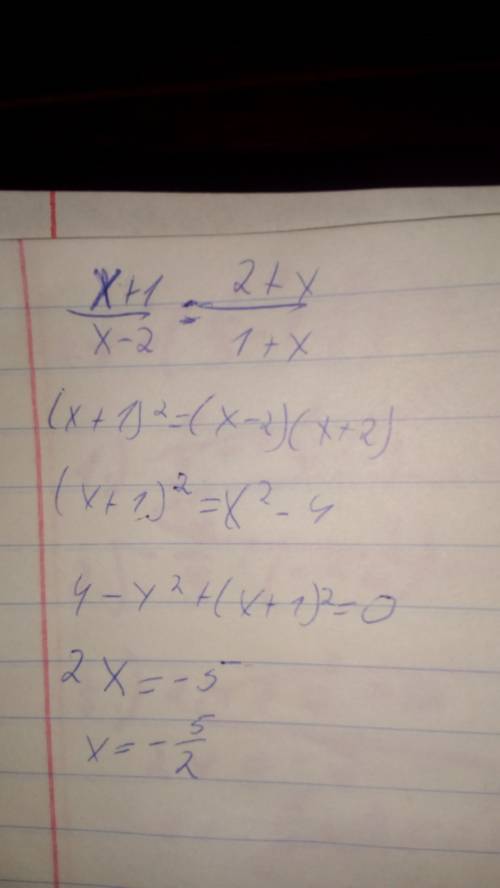 x+1 / x-2 = 2+x / 1+x
(x+1)²=(x-2)(x+2)
(x+1)²=x²-4
4-x²+(x+1)²=0
2x=-5
x=-5/2